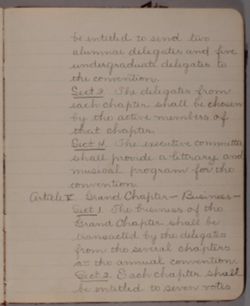 be entitled to send two
alumnae delegates and five
undergraduate delegates to
the convention.
Sect 3. The delegates from
each chapter shall be chosen
by the active members of
that chapter.
Sect 4. The executive committee
shall provide a literary and
musical program for the
convention.
Article V Grand Chapter - Business -
Sect 1. The business of the
Grand Chapter shall be
transacted by the delegates
from the several chapters
at the annual convention.
Sect 2. Each chapter shall
be entitled to seven votes